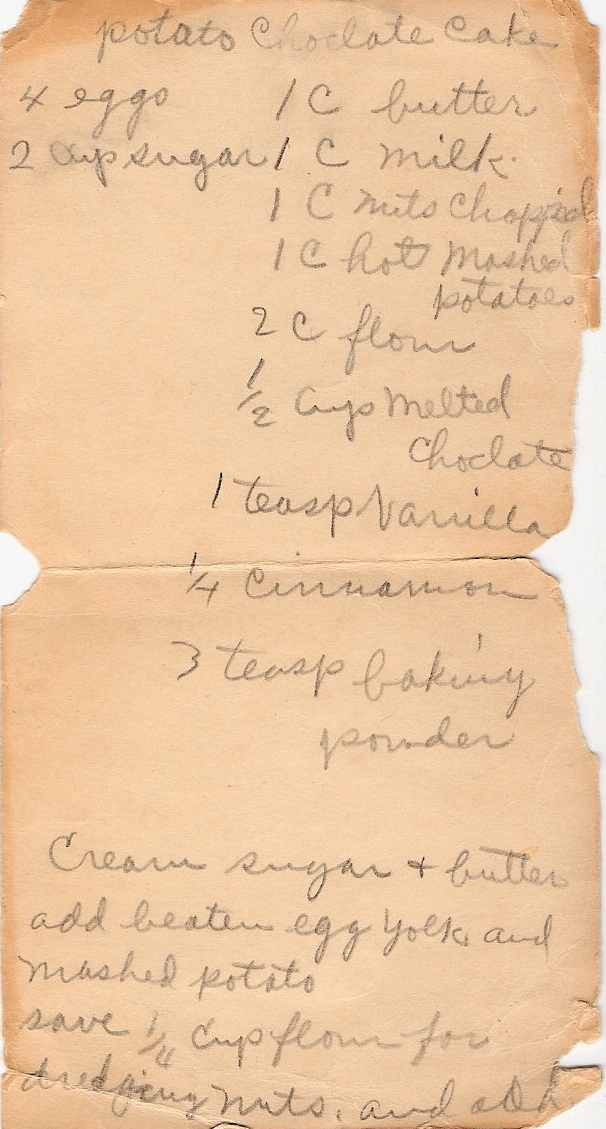 potato Choclate Cake
4 eggs 1 C butter
2 cup sugar 1 C milk.
1 C nuts chopped
1 C hot mashed
potatoes
2 C flour
1/2 cups melted
choclate
1 teasp Vanilla
1/4 cinnamon
3 teasp baking
powder
Cream sugar + butter
add beaten egg yolk and
mashed potato
save 1/4 cup flour for
dredging nuts. and add